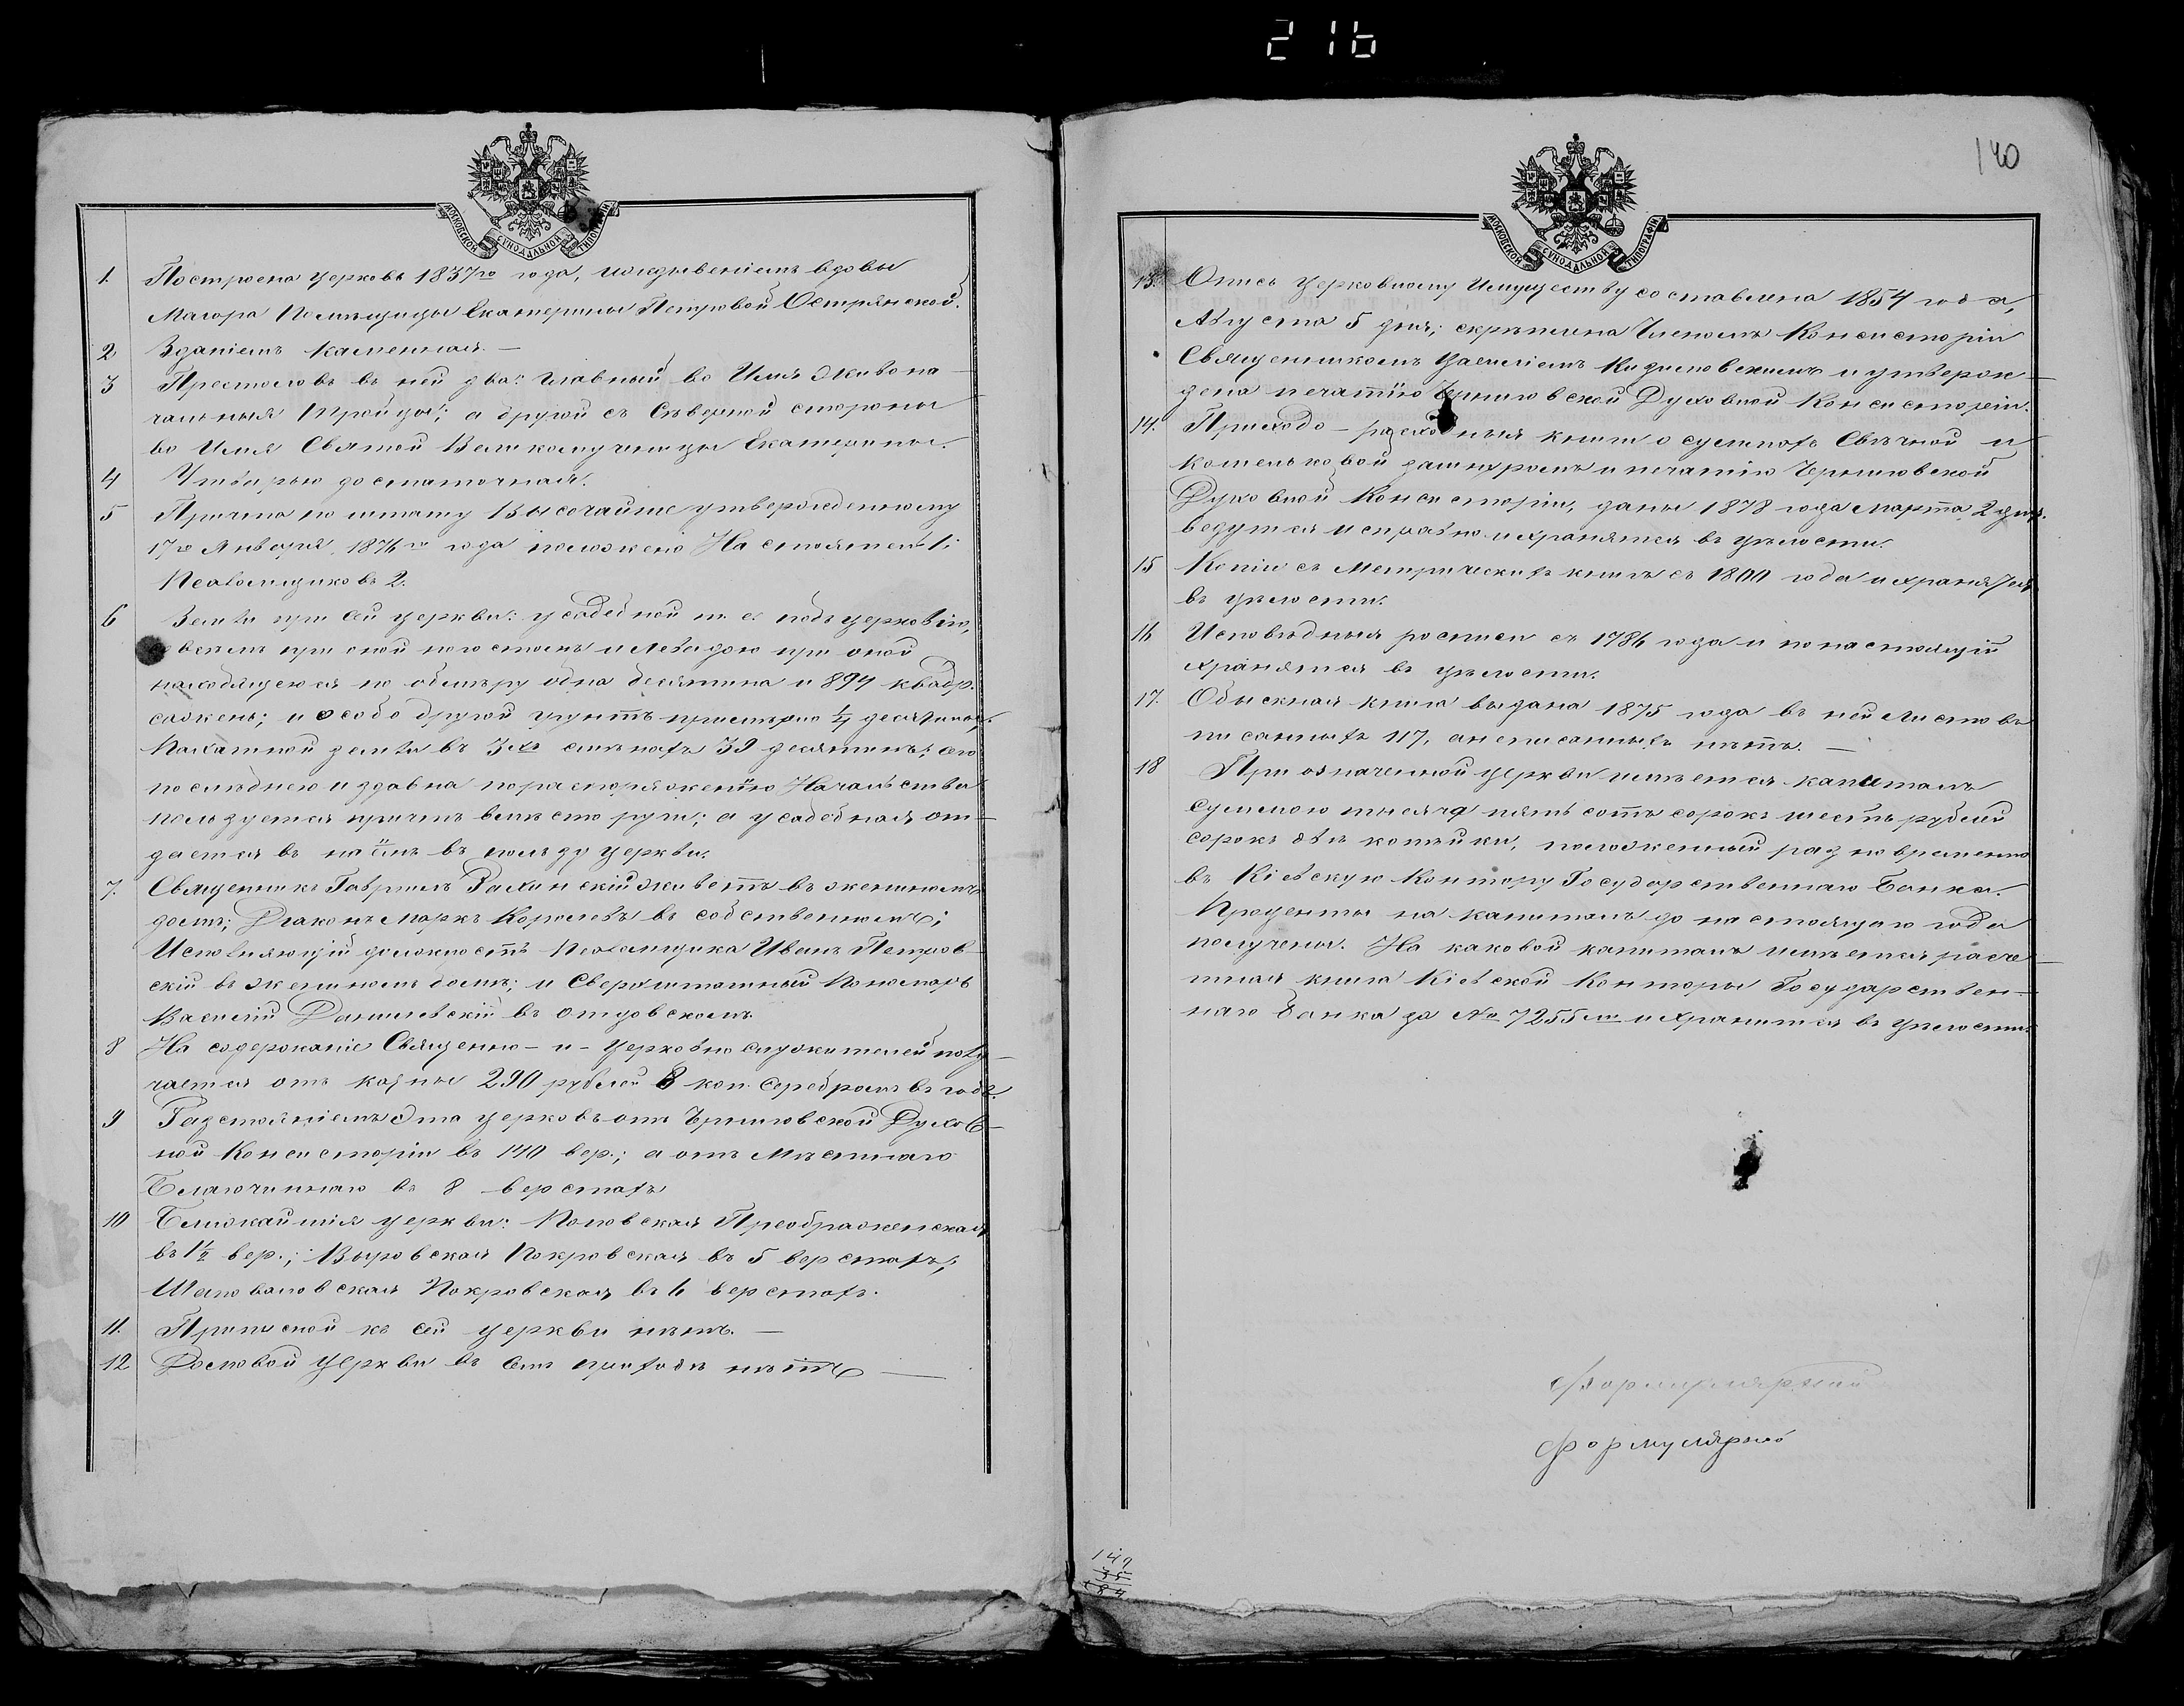 216
МОСКОВСКОЙ СУНОДАЛЬНОЙ ТИПОГРАФІИ
1. Построена церковь 1837го года, иждивеніемъ вдовы
Маіора Помѣщицы Екатерины Петровой Острянской.
2 Зданіемъ каменная. —
3 Престоловъ въ ней два: главный во Имя Живона-
чальныя Тройцы; а другой съ Сѣверной стороны
во Имя Святой Великомученицы Екатерины.
4 Утварью достаточная.
5 Причта по штату Высочайше утвержденному
17го Января 1876го года положено Настоятель 1;
Псаломщиковъ 2.
6 Земли при сей церкви: усадебной т. е. подъ церковію,
всѣмъ при оной погостомъ и левадою при оной
находящеюся по обмѣру одна десятина и 894 квадр.
сажень; и особо другой грунтъ примѣрно 1/4 десятины.
Пахатной земли въ 3хъ смѣнахъ 39 десятинъ; сею
послѣднею издавна по распоряженію Начальства
пользуется причтъ вмѣсто руги; а усадебная от-
дается въ наёмъ въ пользу церкви.
7. Священникъ Гавріилъ живетъ въ женином
домѣ; Діаконъ Маркъ Королевъ въ собственномъ;
Исполняющій должность Псаломщика Иванъ Петров-
скій въ женином домѣ; и Сверхштатный Пономарь
Василій Данилевскій въ отцовскомъ.
8 На содержаніе Священно-и-Церковно служителей полу-
чается отъ казны 290 рублей 8 коп. серебромъ въ годъ.
9 Разстояніемъ эта церковь отъ Черниговской Духов-
ной Консисторіи въ 140 вер.; а отъ Мѣстнаго
Благочиннаго въ 8 верстахъ
10 Ближайшія церкви: Поповская Преображенская
въ 1½ вер.; Выровская Покровская въ 5 верстахъ;
Шаповаловская Покровская въ 6 верстахъ.
11. Приписной къ сей церкви нѣтъ. —
12 Домовой церкви въ семъ приходѣ нѣтъ —
140
МОСКОВСКОЙ СУНОДАЛЬНОЙ ТИПОГРАФІИ
13. Опись церковному Имуществу составлена 1854 года,
Августа 5 дня; скрѣплена Членомъ Консисторіи
Священникомъ и утверж-
дена печатію Черниговской Духовной Консисторіи.
14. Приходо-расходныя книги о суммахъ Свѣчной и
кошельковой за шнуромъ и печатію Черниговской
Духовной Консисторіи, даны 1878 года Марта 2 дня.
ведутся исправно и хранятся въ цѣлости.
15 Копіи съ Метрическихъ книгъ съ 1800 года и хранятся
въ цѣлости.
16 Исповѣдныя росписи съ 1786 года и по настоящій
хранятся въ цѣлости.
17. Обыскная книга выдана 1875 года въ ней листовъ
писанныхъ 117, а неписанныхъ нѣтъ. —
18 При означенной церкви имѣется капиталъ
суммою тысяча пять сотъ сорокъ шесть рублей
сорокъ двѣ копѣйки, положенный разновременно
въ Кіевскую Контору Государственнаго Банка.
Проценты на капиталъ до настоящаго года
получены. На каковой капиталъ имѣется расче-
тная книга Кіевской Конторы Государствен-
наго Банка за № 7255мъ и хранится въ цѣлости.
Формулярный
Формулярный